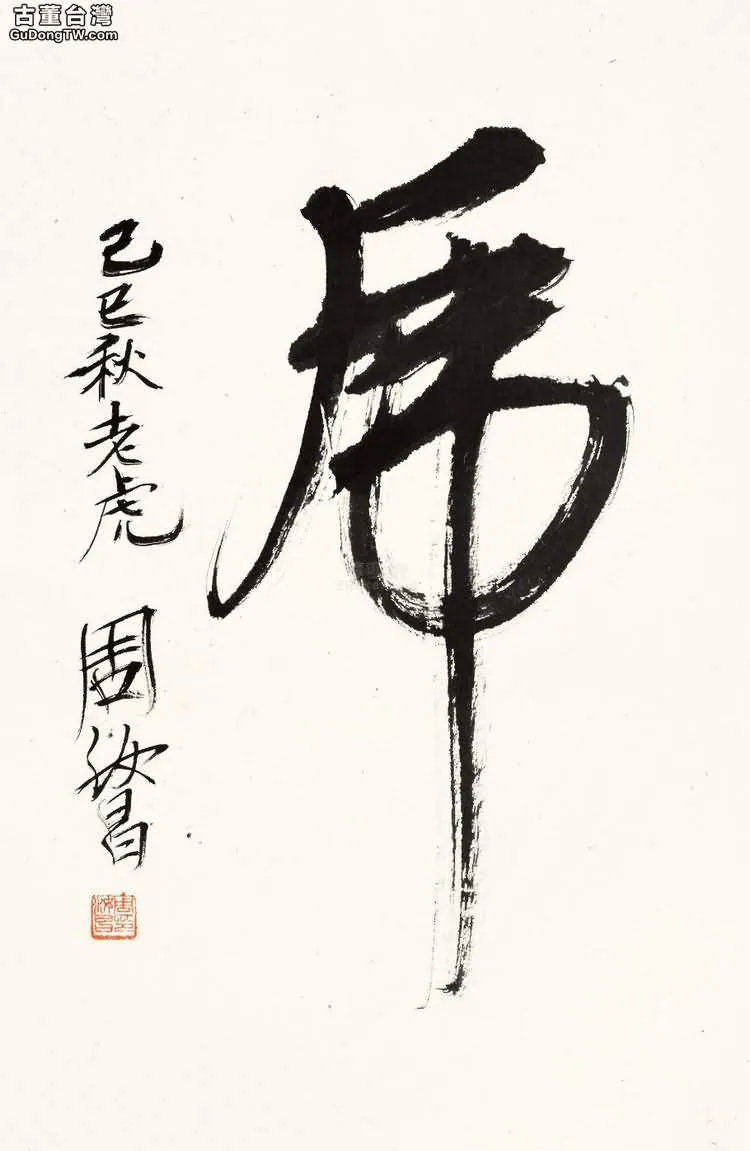 古董台灣
GuDongTW.com
虎
己巳秋老虎
周汝昌